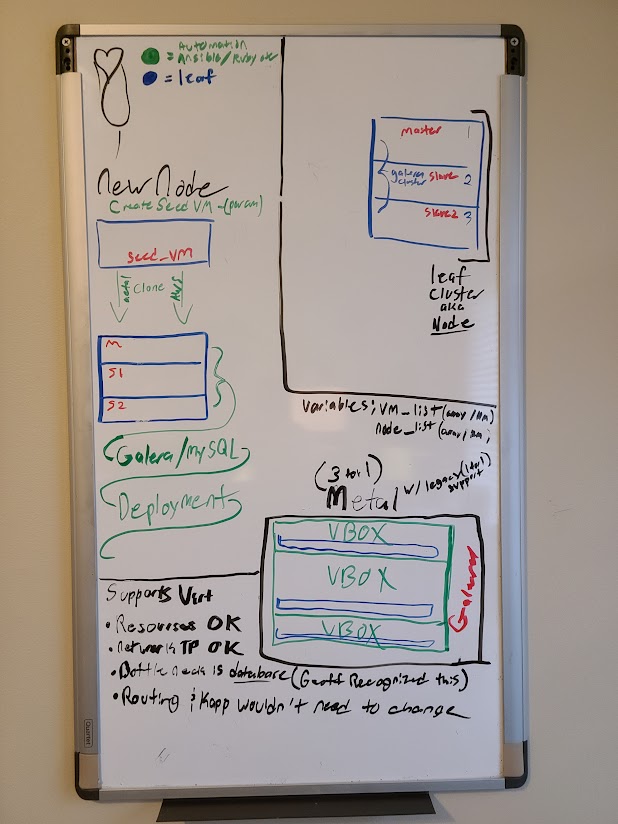 = Automation
Ansible/Ruby etc
= leaf
New Node
Create Seed VM -(param)
Seed_VM
metal
Clone
M
S1
S2
Galera/MySQL
Deployment
master 1
galera
cluster
slave 2
slave2 3
leaf
cluster
aka
Node
Variables; VM_list (array/
node_list (array/
(3 to 1)
Metal w/ legacy (1 to 1)
support
VBOX
VBOX
VBOX
Galera
Supports Virt
• Resources OK
• Network TP OK
• Bottle neck is database (Geoff Recognized this)
• Routing & Kapp wouldn't need to change
Quartet